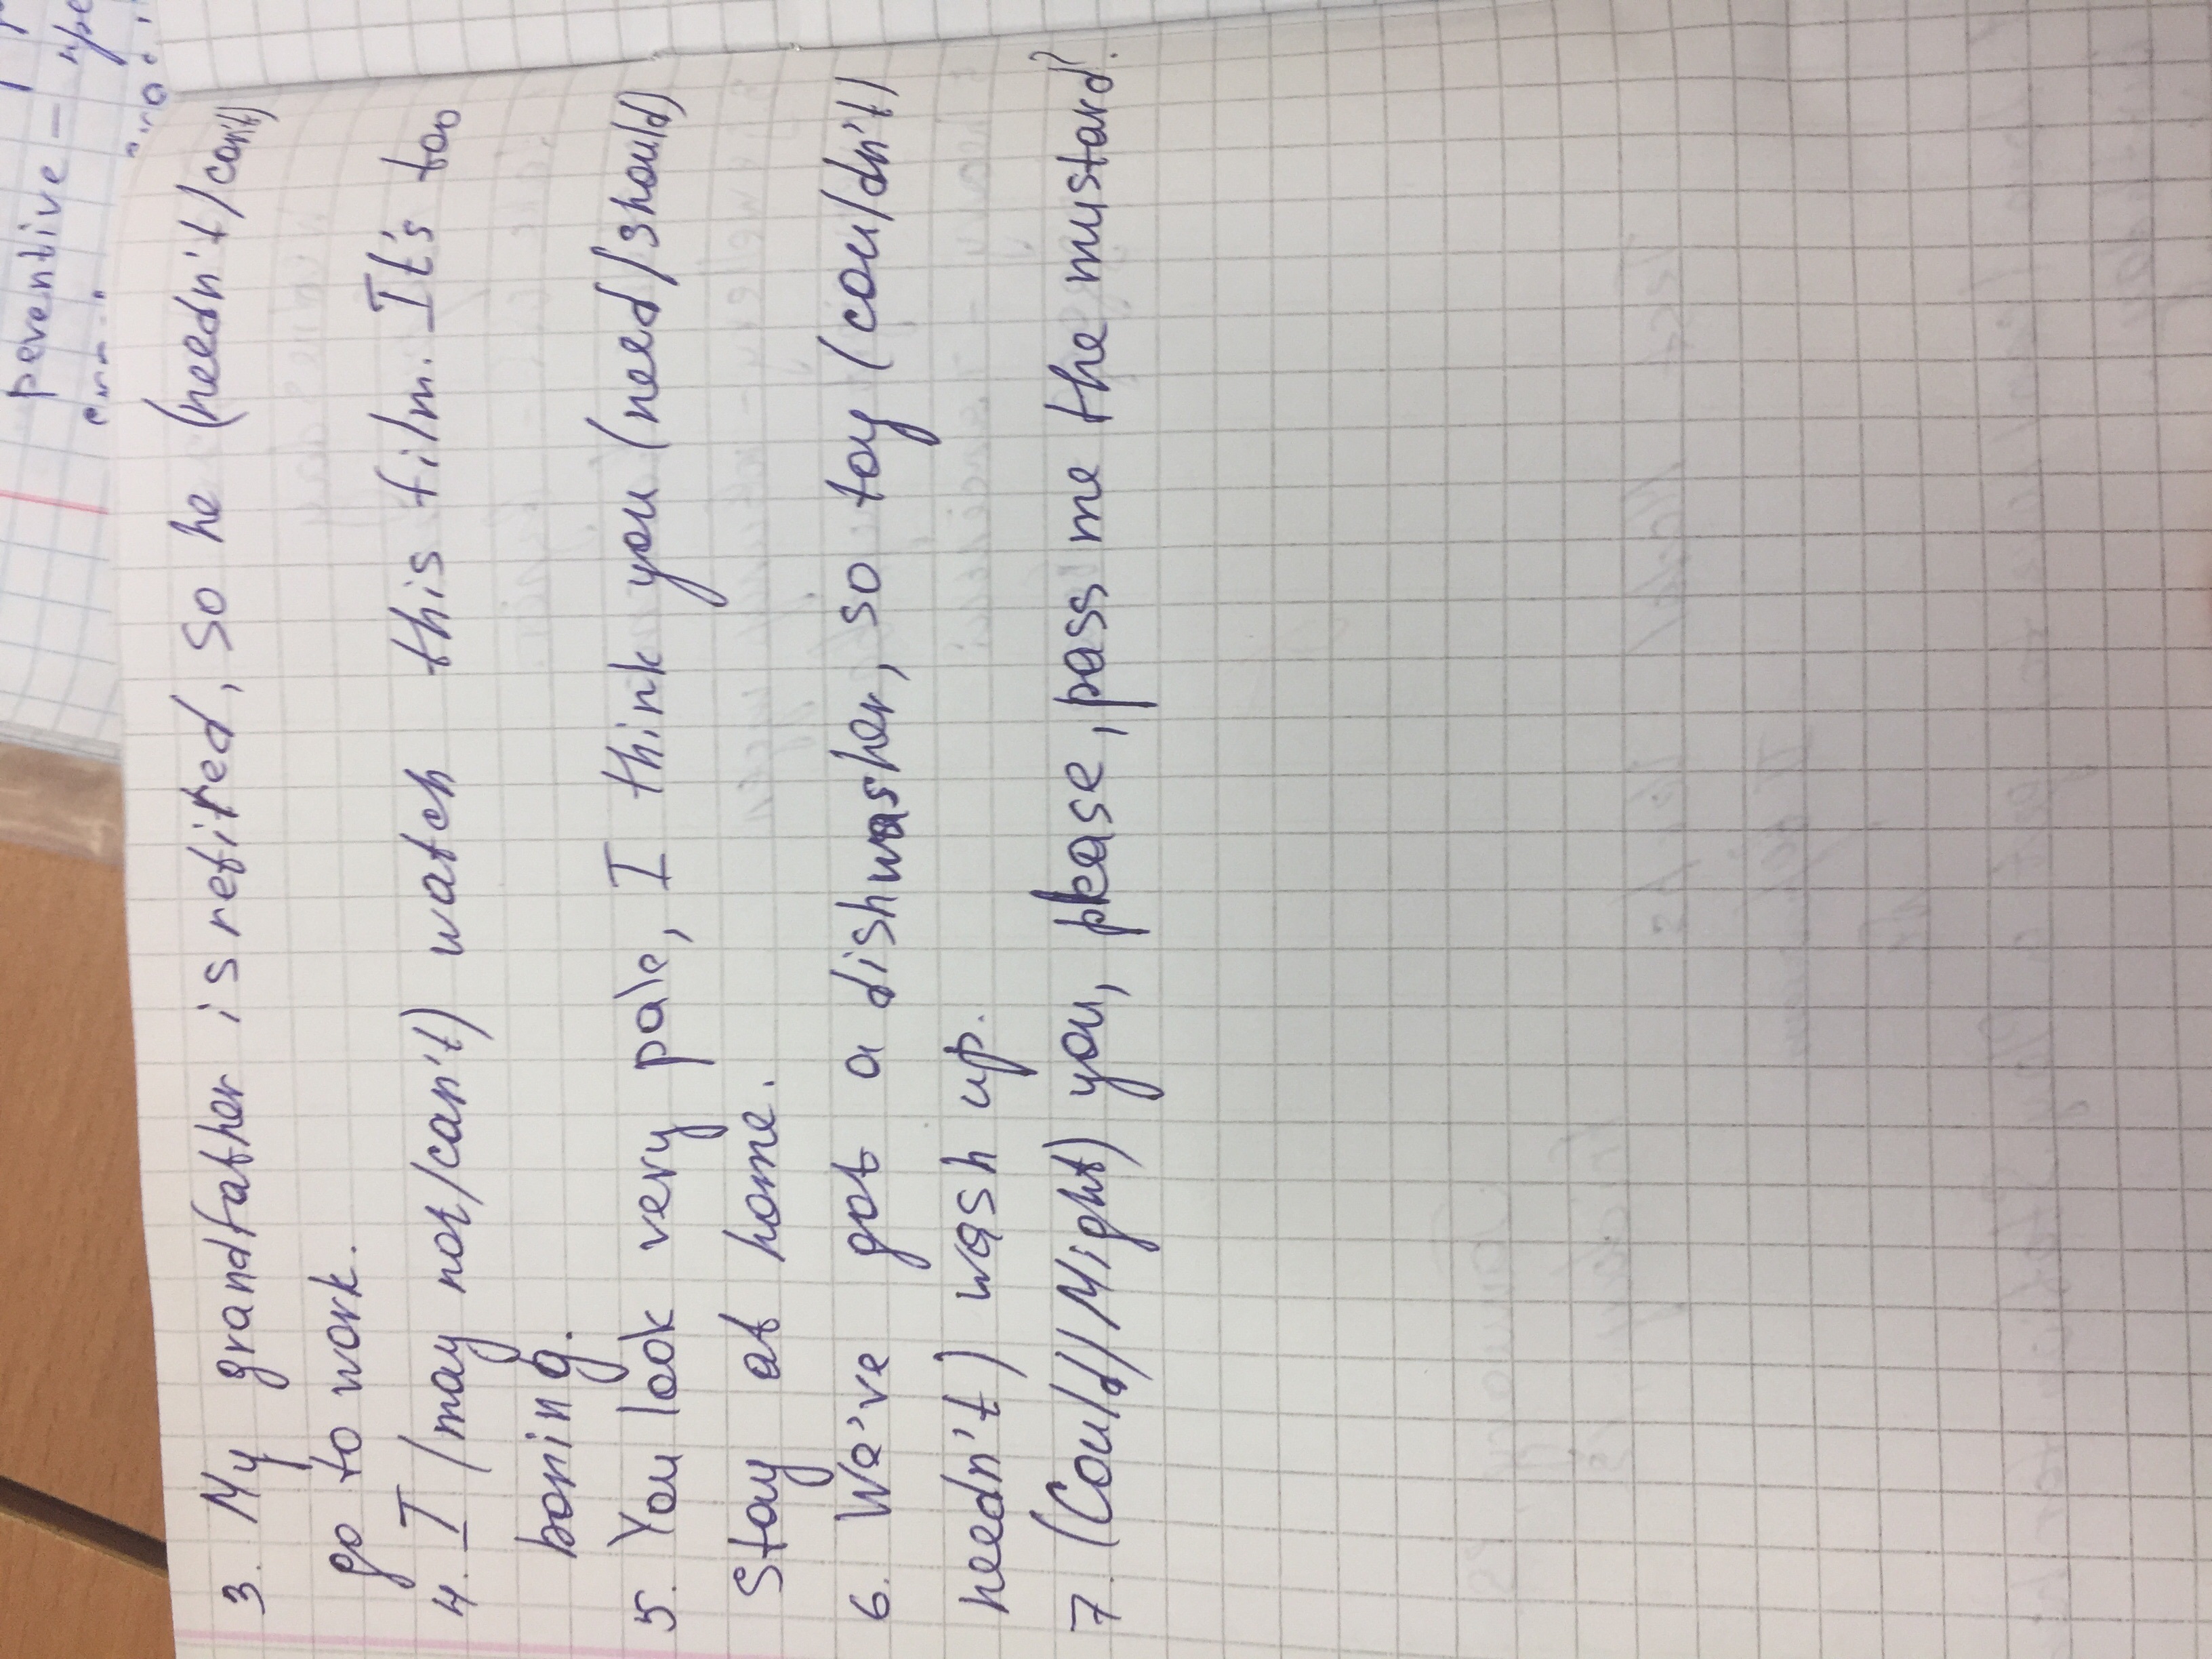 peventive -
3. My grandfather is retired, so he (needn't/can't)
go to work.
4. I (may not/can't) watch this film. It's too
boring.
5. You look very pale, I think you (need/should)
stay at home.
6. We've got a dishwasher, so toy (couldn't
needn't) wash up.
7. (Could/Might) you, please, pass me the mustard?